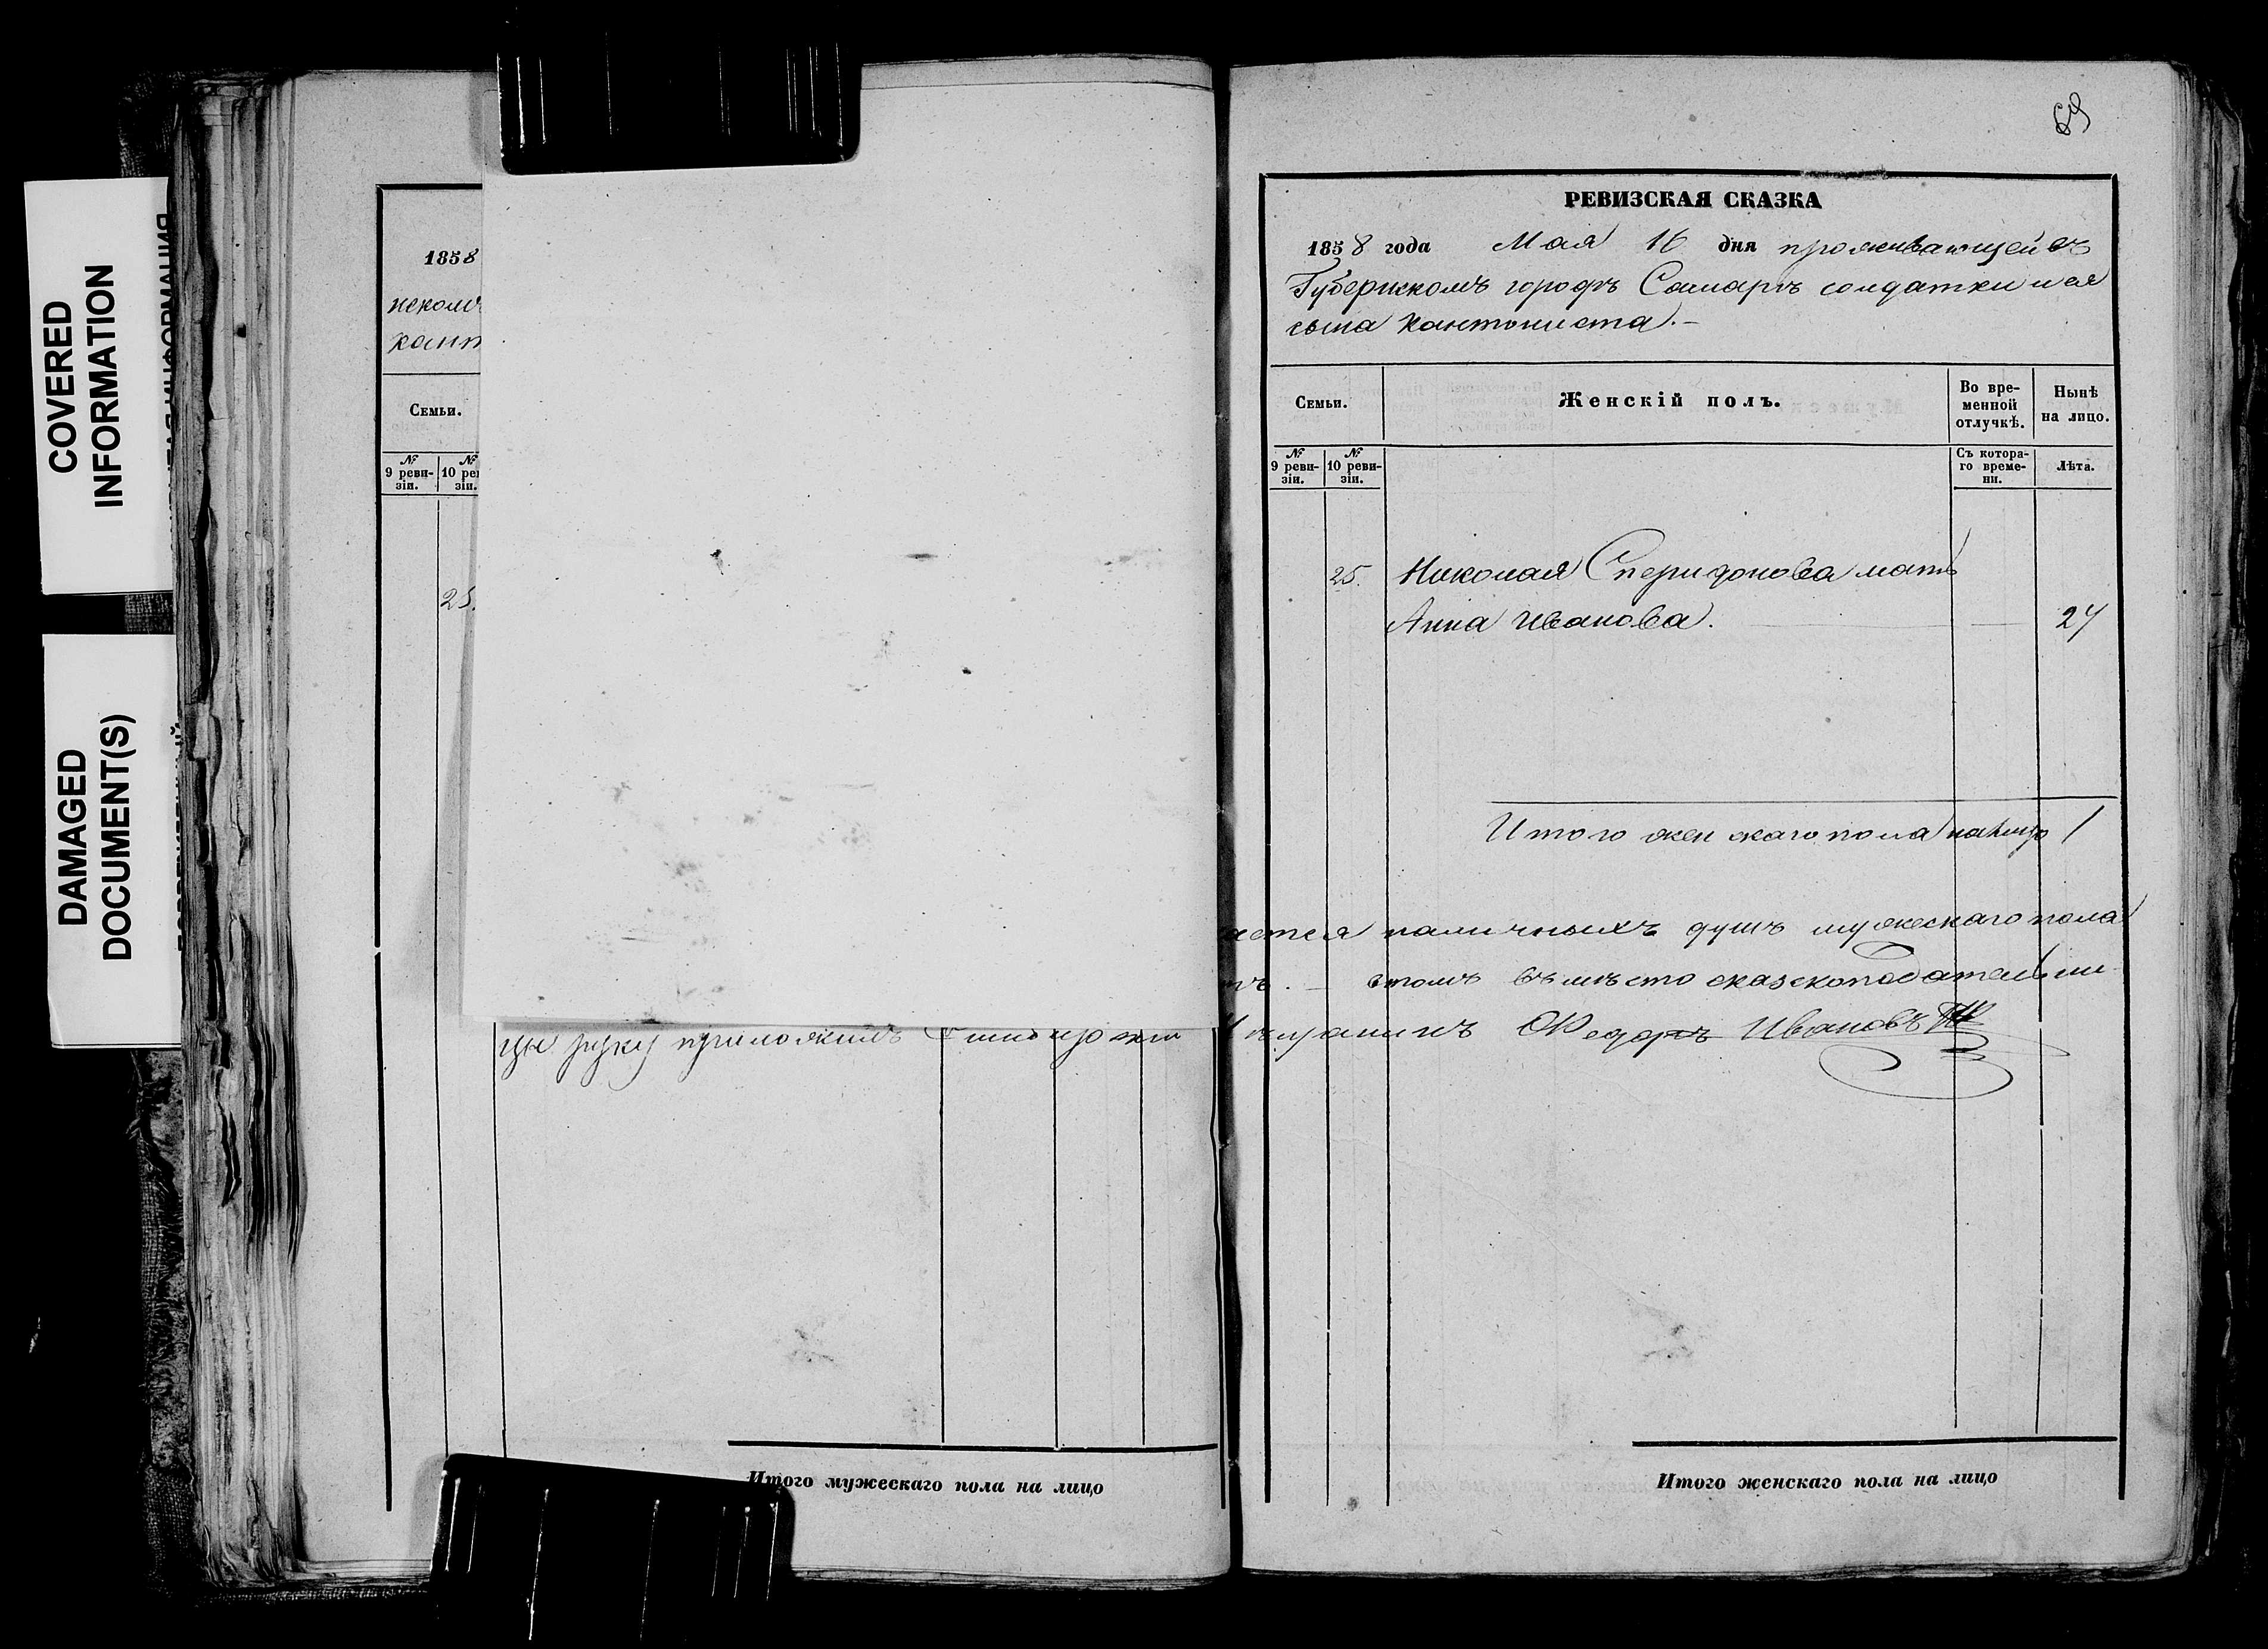 COVERED
INFORMATION
DAMAGED
DOCUMENT(S)
1858
кант
Семьи.
№ 9 реви-зіи. № 10 реви-зіи.
25.
цы руку приложилъ
Итого мужескаго пола на лицо
69
РЕВИЗСКАЯ СКАЗКА
1858 года Мая 16 дня проживающей въ
Губернскомъ городѣ Самарѣ солдатки и ея
сына кантониста.-
Семьи.
Женскій полъ.
Во вре-менной отлучкѣ.
Нынѣ на лицо.
№ 9 реви-зіи. № 10 реви-зіи.
Съ котора-го време-ни.
Лѣта.
25. Николая Сперидонова мать
Анна Иванова. 24
Итого женскаго пола налицо 1
ается наличныхъ душъ мужескаго пола
въ мѣсто сказкоподательни
Ѳедоръ Ивановъ
Итого женскаго пола на лицо